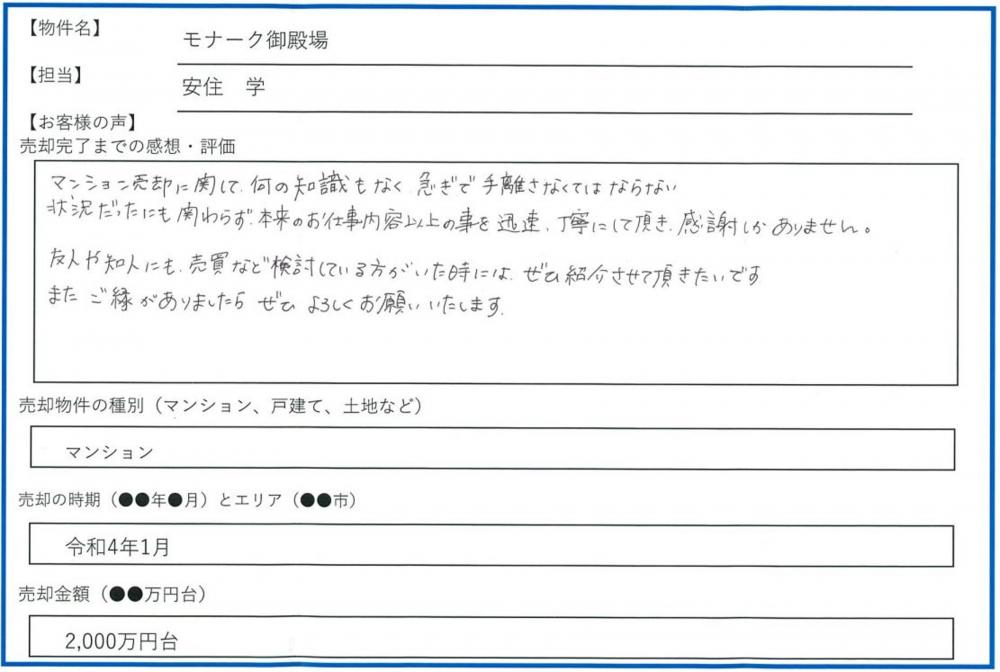 【物件名】
モナーク御殿場
【担当】
安住　学
【お客様の声】
売却完了までの感想・評価
マンション売却に関して、何の知識もなく、急ぎで手離さなくてはならない
状況だったにも関わらず、本来のお仕事内容以上の事を迅速、丁寧にして頂き、感謝しかありません。
友人や知人にも、売買など検討している方がいた時には、ぜひ紹介させて頂きたいです
また ご縁がありましたら ぜひ よろしくお願いいたします。
売却物件の種別（マンション、戸建て、土地など）
マンション
売却の時期（●●年●月）とエリア（●●市）
令和4年1月
売却金額（●●万円台）
2,000万円台